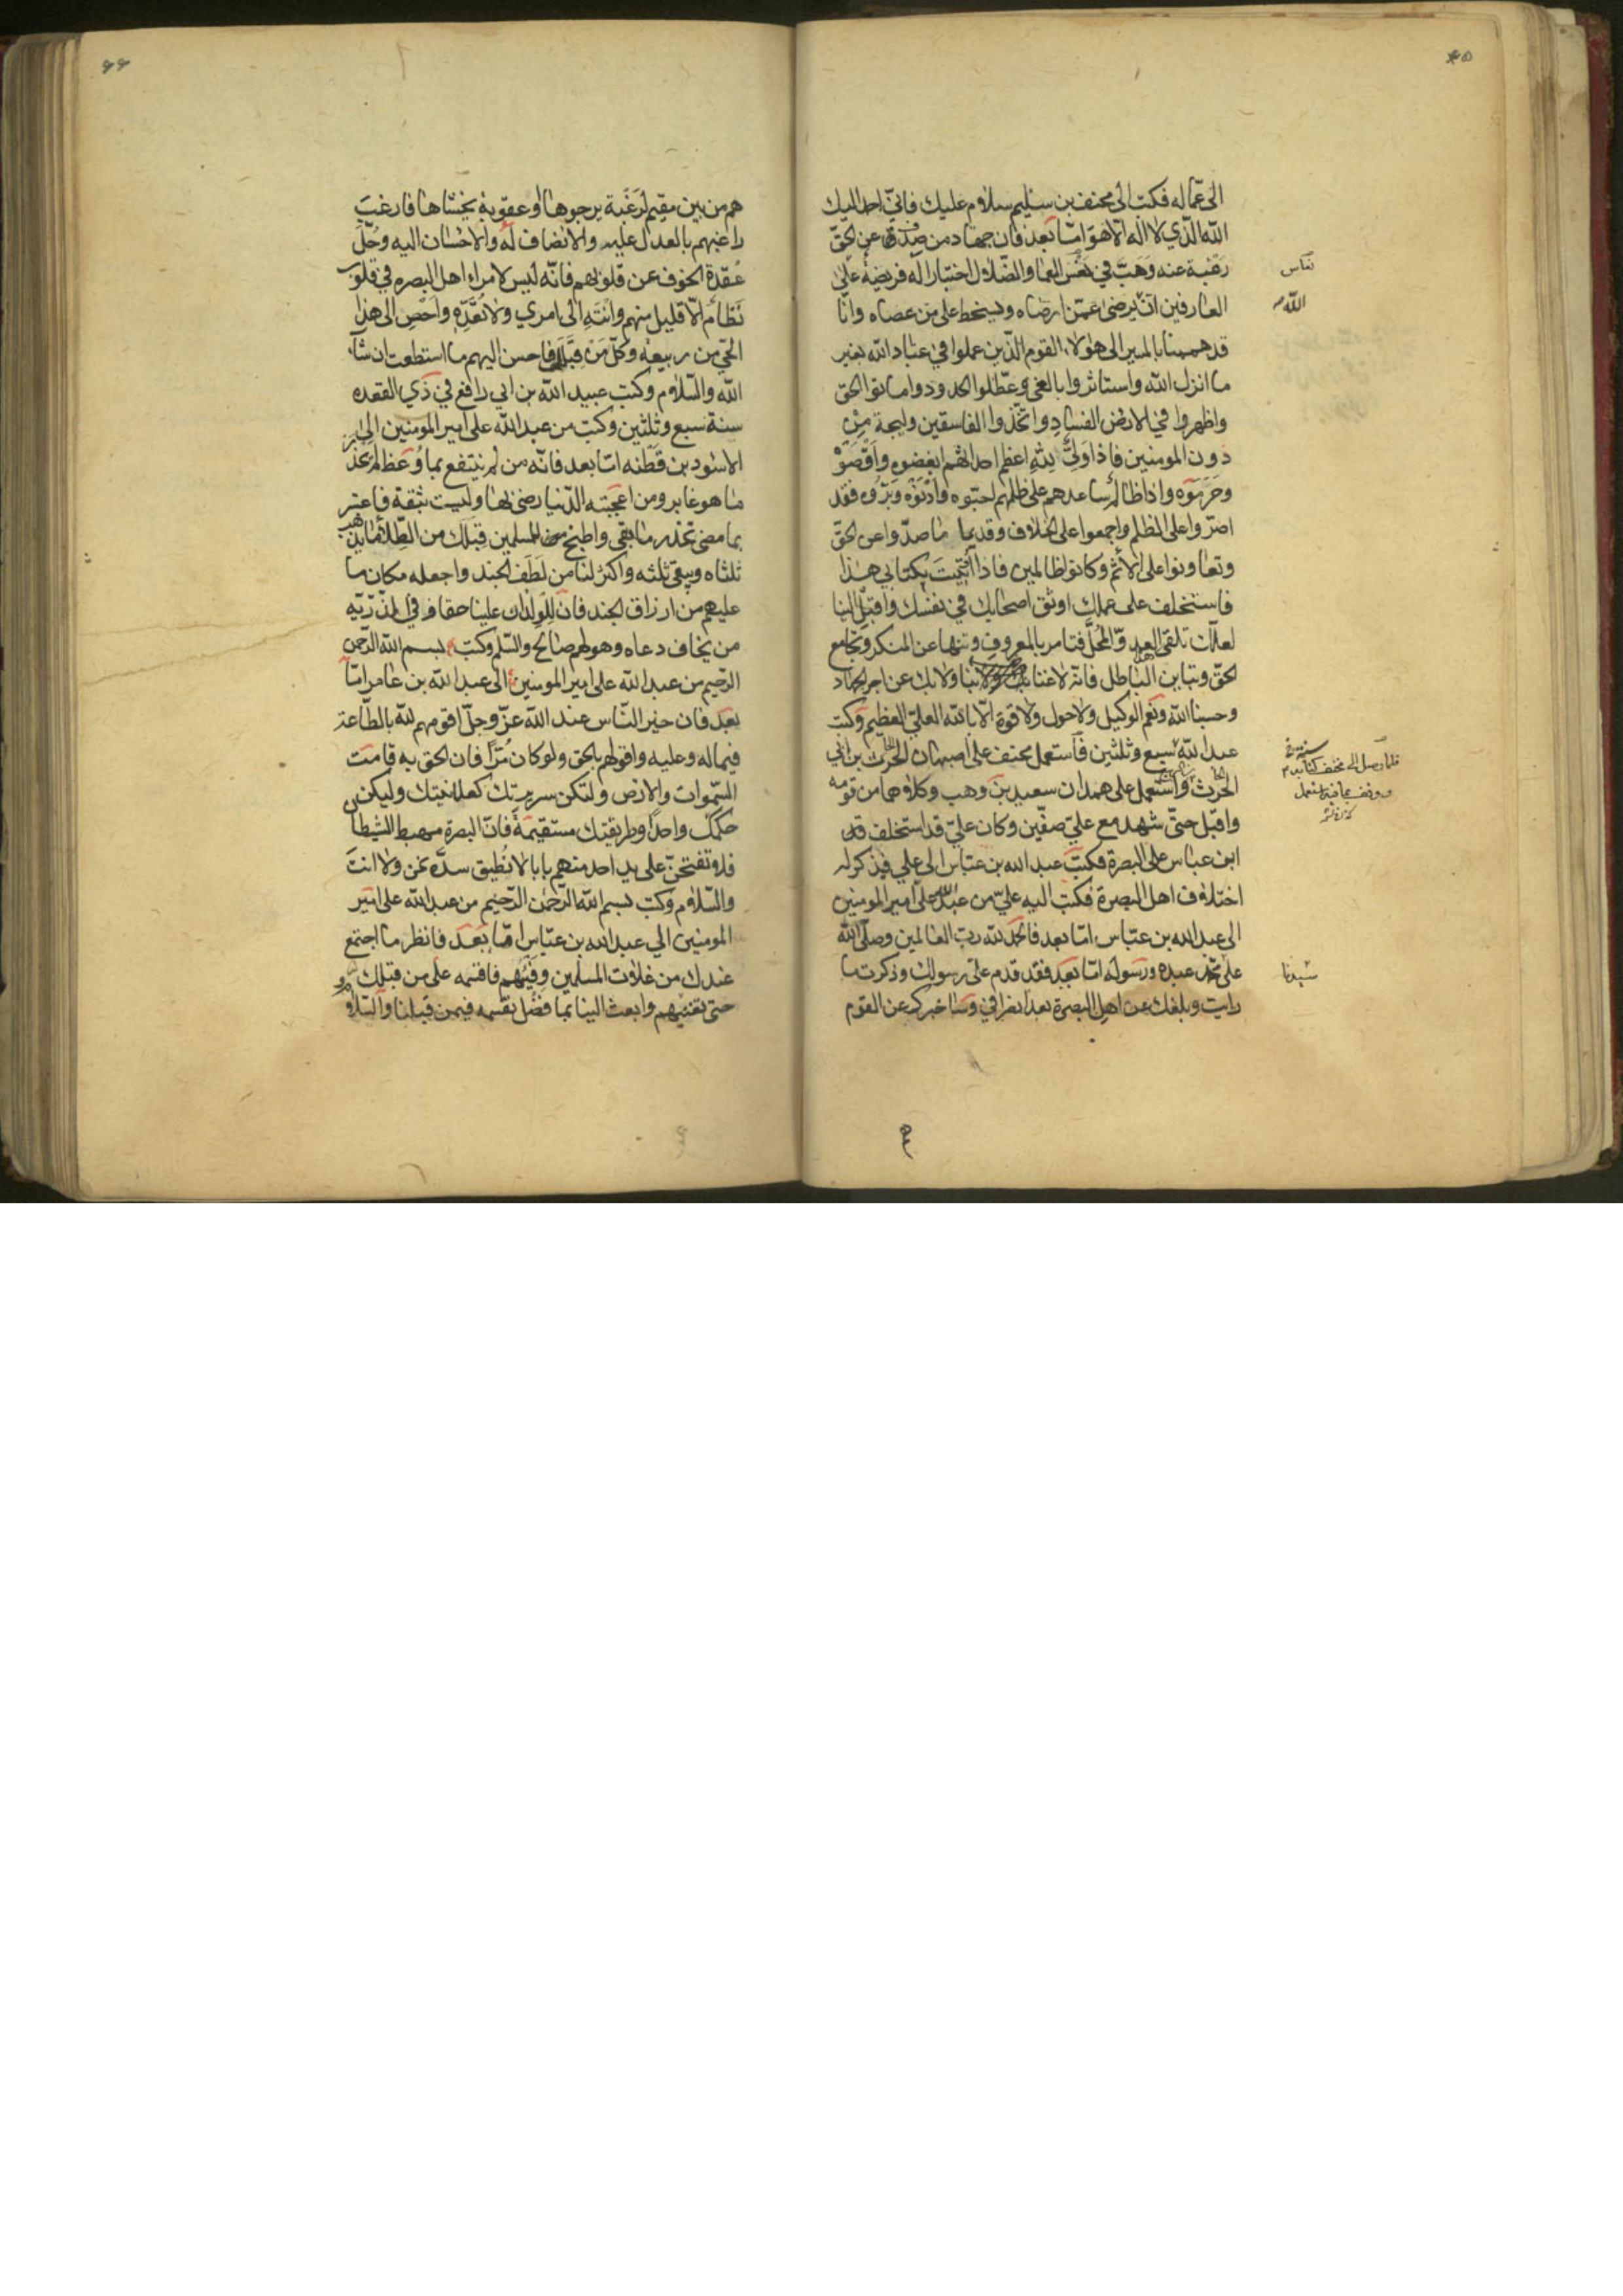 ٤٥
الى عماله فكتب الى مخنف بن سليم سلام عليك فاني احمد اليك
الله الذي لا اله الا هو امّا بعد فان جهاد من صدف عن الحق
رغبة عنه وهَبّ في نعس العما والضلال اختيارا له فريضة على
العارفين ان يرضى عمّن ارضاه ويسخط على من عصاه وانا
قد هممنا بالمسير الى هؤلاء القوم الذين عملوا في عباد الله بغير
ما انزل الله واستاثروا بالفئ وعطلوا الحدود واماتوا الحق
واظهروا في الارض الفساد واتخذوا الفاسقين وليجة من
دون المومنين فاذا وليّ لله اعظم احداثهم ابغضوه واقصوه
وحرموه واذا ظالم ساعدهم على ظلمهم احبّوه وادنوه وبرّوه فقد
اصرّوا على الظلم واجمعوا على الخلاف وقديما ما صدّوا عن الحقّ
وتعاونوا على الاثم وكانوا ظالمين فاذا أتيت بكتابي هذا
فاستخلف على عملك اوثق اصحابك في نفسك واقبل الينا
لعلك تلقى العدو المحلّ فتامر بالمعروف وتنها عن المنكر وتجامع
الحق وتباين الباطل فانه لا غنا بنا ولا بك عن اجر الجهاد
وحسبنا الله ونعم الوكيل ولا حول ولا قوة الا بالله العلي العظيم وكتب
عبد الله سبع وثلثين فاستعمل مخنف على اصبهان الحرث بن ابي
الحرث واستعمل على همدان سعيد بن وهب وكلاهما من قومه
واقبل حتى شهد مع عليّ صفّين وكان عليّ قد استخلف
ابن عباس على البصرة فكتب عبد الله بن عباس الى علي فذكر له
اختلاف اهل البصرة فكتب اليه عليّ من عبد الله علي امير المومنين
الى عبد الله بن عبّاس امّا بعد فالحمد لله ربّ العالمين وصلّى الله
على محمد عبده ورسوله امّا بعد فقد قدم علي رسولك وذكرت ما
رايت وبلغك عن اهل البصرة بعد انصرافي وساخبرك عن القوم
نعاس
الله
فلما وصل الى مخنف كتابه
سيدنا
٤٦
هم من بين مقيم لرغبة يرجوها او عقوبة يخشاها فارغب
راغبهم بالعدل عليه والانصاف له والاحسان اليه وحُلّ
عُقدة الخوف عن قلوبهم فانّه ليس لامراء اهل البصره في قلوب
نظامم الّا قليل منهم وانته الى امري ولا تعدّه واحص الى هذا
الحيّ من ربيعه وكلّ من قبلك فاحسن اليهم ما استطعت ان شاء
الله والسّلام وكتب عبيد الله بن ابي رافع في ذي القعده
سنة سبع وثلثين وكتب من عبد الله علي امير المومنين الى
الاسود بن قطنه امّا بعد فانّه من لم ينتفع بما وُعظ لم يحذر
ما هو غابر ومن اعجبته الدّنيا رضى بها وليست بثقة فاعتبر
بما مضى تحذر ما بقى واطبخ للمسلمين قبلك من الطّلا ما يذهب
ثلثاه ويبقى ثلثه واكثر لنا من لطف الجند واجعله مكان ما
عليهم من ارزاق الجند فانّ للولدان علينا حقا وفي الذرّيه
من يخاف دعاه وهو لهم صالح والسّلم وكتب بسم الله الرّحمن
الرّحيم من عبد الله علي امير المومنين الى عبد الله بن عامر امّا
بعد فان خير النّاس عند الله عزّ وجلّ اقومهم لله بالطّاعة
فيما له وعليه واقولهم بالحق ولو كان مُرّا فان الحق به قامت
السّموات والارض ولتكن سريرتك كعلانيتك وليكن
حكمك واحدا وطريقتك مستقيمة فانّ البصرة مهبط الشيطان
فلا تفتحنّ على يد احد منهم بابا لا نُطيق سدّه نحن ولا انت
والسّلام وكتب بسم الله الرّحمن الرّحيم من عبد الله علي امير
المومنين الي عبد الله بن عبّاس امّا بعد فانظر ما اجتمع
عندك من غلات المسلمين وفيئهم فاقسمه على من قبلك
حتى تغنيهم وابعث الينا بما فضل نقسمه فيمن قبلنا والسّلام